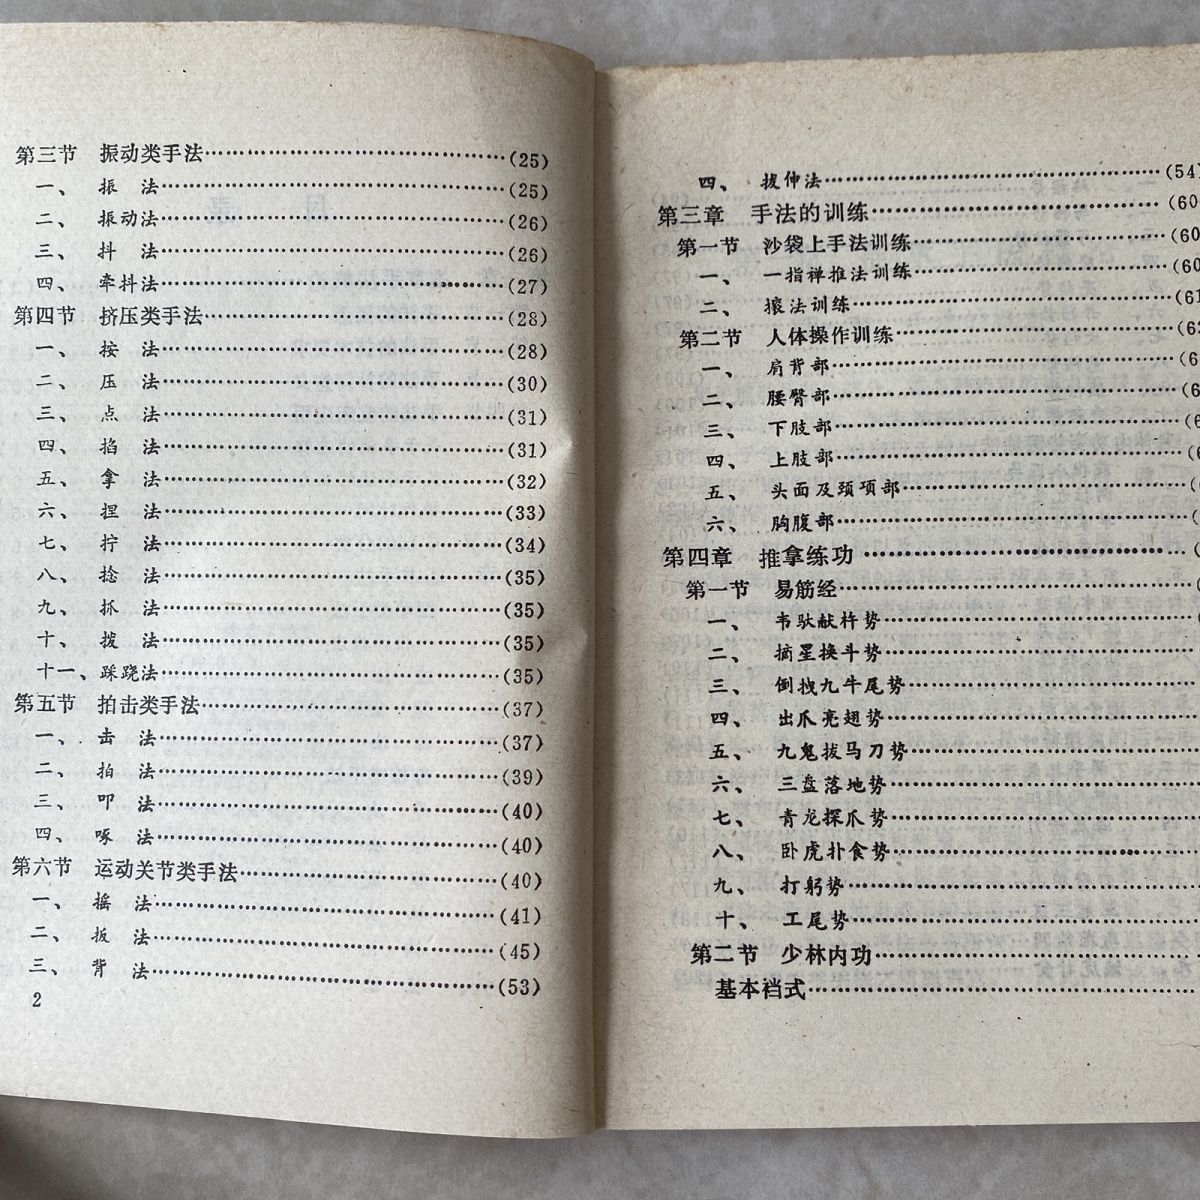 第三节 振动类手法……(25)
一、振 法……(25)
二、振动法……(26)
三、抖 法……(26)
四、牵抖法……(27)
第四节 挤压类手法……(28)
一、按 法……(28)
二、压 法……(30)
三、点 法……(31)
四、掐 法……(31)
五、拿 法……(32)
六、捏 法……(33)
七、拧 法……(34)
八、捻 法……(35)
九、抓 法……(35)
十、拨 法……(35)
十一、踩跷法……(35)
第五节 拍击类手法……(37)
一、击 法……(37)
二、拍 法……(39)
三、叩 法……(40)
四、啄 法……(40)
第六节 运动关节类手法……(40)
一、摇 法……(41)
二、扳 法……(45)
三、背 法……(53)
2
四、拔伸法……(54)
第三章 手法的训练……(60
第一节 沙袋上手法训练……(60
一、一指禅推法训练……(60
二、㨰法训练……(61
第二节 人体操作训练……(62
一、肩背部……(6
二、腰臀部……(6
三、下肢部……(6
四、上肢部……(6
五、头面及颈项部……(
六、胸腹部……(
第四章 推拿练功……(
第一节 易筋经……(
一、韦驮献杵势……(
二、摘星换斗势……
三、倒拽九牛尾势……
四、出爪亮翅势……
五、九鬼拔马刀势……
六、三盘落地势……
七、青龙探爪势……
八、卧虎扑食势……
九、打躬势……
十、工尾势……
第二节 少林内功……
基本裆式……